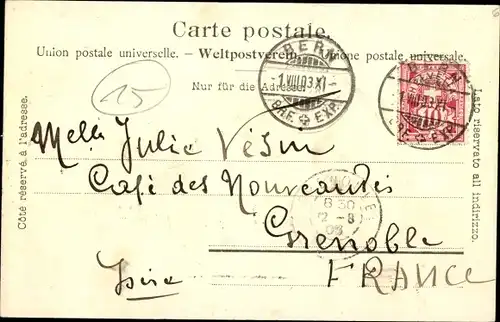 Carte postale.
Union postale universelle. – Weltpostverein. – Unione postale universale.
Nur für die Adresse.
BERN
-1.VIII.03.XI-
BRF. EXP.
BERN
1.VIII.03.XI
BRF. EXP.
10
15
Côté réservé à l'adresse.
Lato riservato all indirizzo.
Melle Julie Vésin
Café des Nouveautés
8 30
2 -8
03
Grenoble
Isère
FRANCE